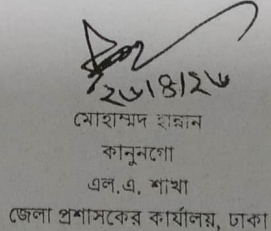 ২৬/৪/২৬
মোহাম্মদ হান্নান
কানুনগো
এল.এ. শাখা
জেলা প্রশাসকের কার্যালয়, ঢাকা